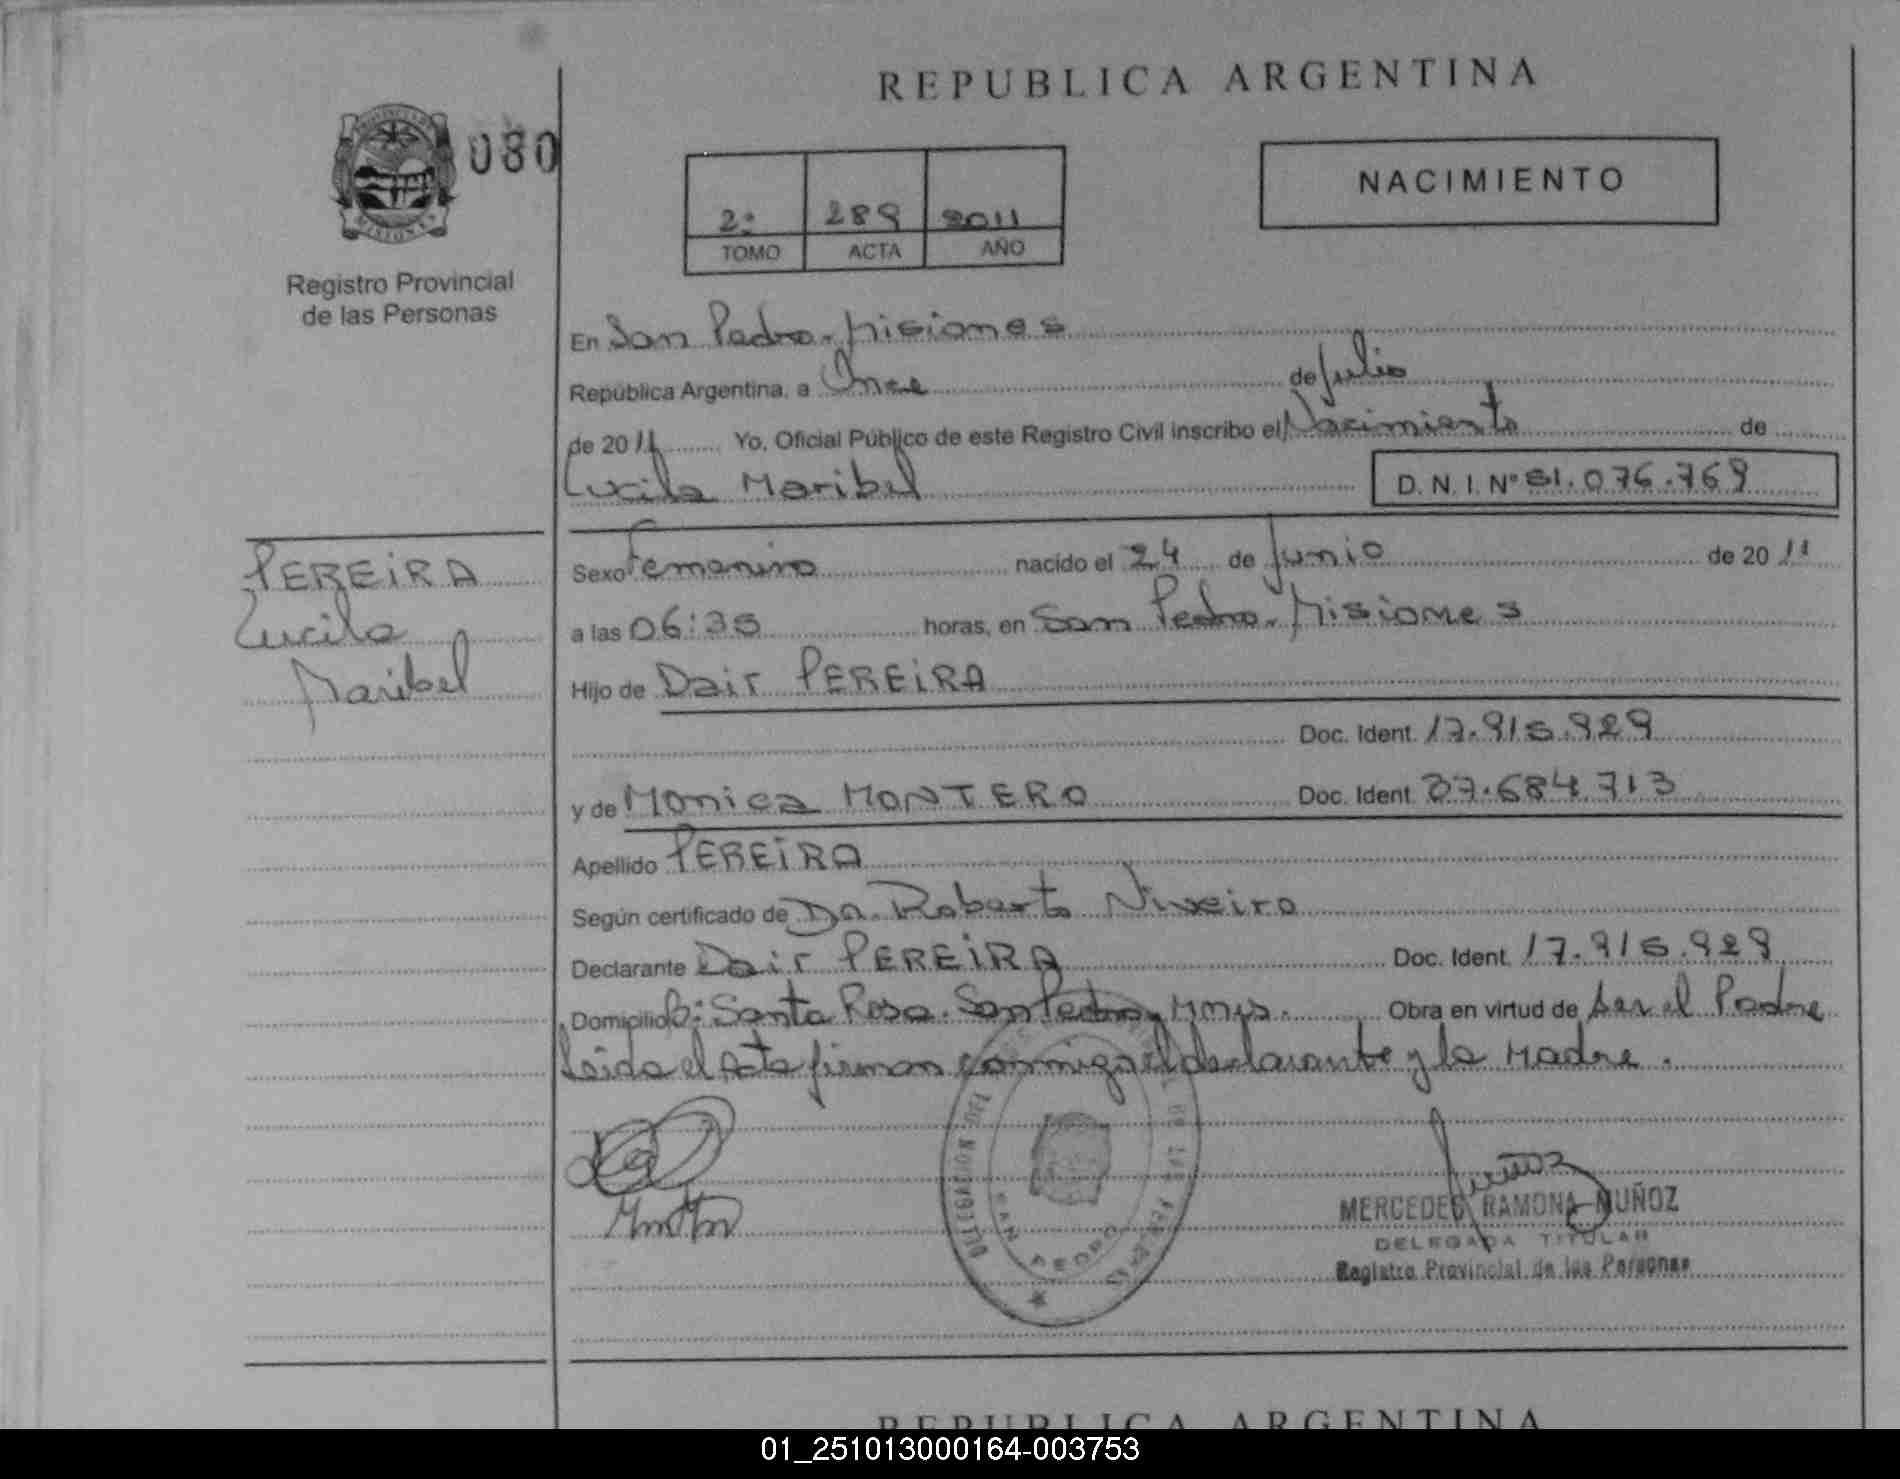 REPUBLICA ARGENTINA
080
NACIMIENTO
2: 289 2011
TOMO ACTA AÑO
Registro Provincial
de las Personas
En San Pedro. Misiones
República Argentina, a Once de Julio
de 2011 Yo, Oficial Público de este Registro Civil inscribo el Nacimiento de
Lucila Maribel D.N.I. Nº 51.076.769
PEREIRA
Lucila
Maribel
Sexo Femenino nacido el 24 de Junio de 2011
a las 06:35 horas, en San Pedro. Misiones
Hijo de Dair PEREIRA
Doc. Ident. 17.915.929
y de Monica MONTERO Doc. Ident. 37.684.713
Apellido PEREIRA
Según certificado de Dr. Roberto
Declarante Dair PEREIRA Doc. Ident. 17.915.929
Domicilio B: Santa Rosa. San Pedro, Mnes. Obra en virtud de ser el Padre
Leida el Acta firman conmigo el declarante y la Madre.
SAN PEDRO
MERCEDES RAMONA MUÑOZ
DELEGADA TITULAR
Registro Provincial de las Personas
REPUBLICA ARGENTINA
01_251013000164-003753